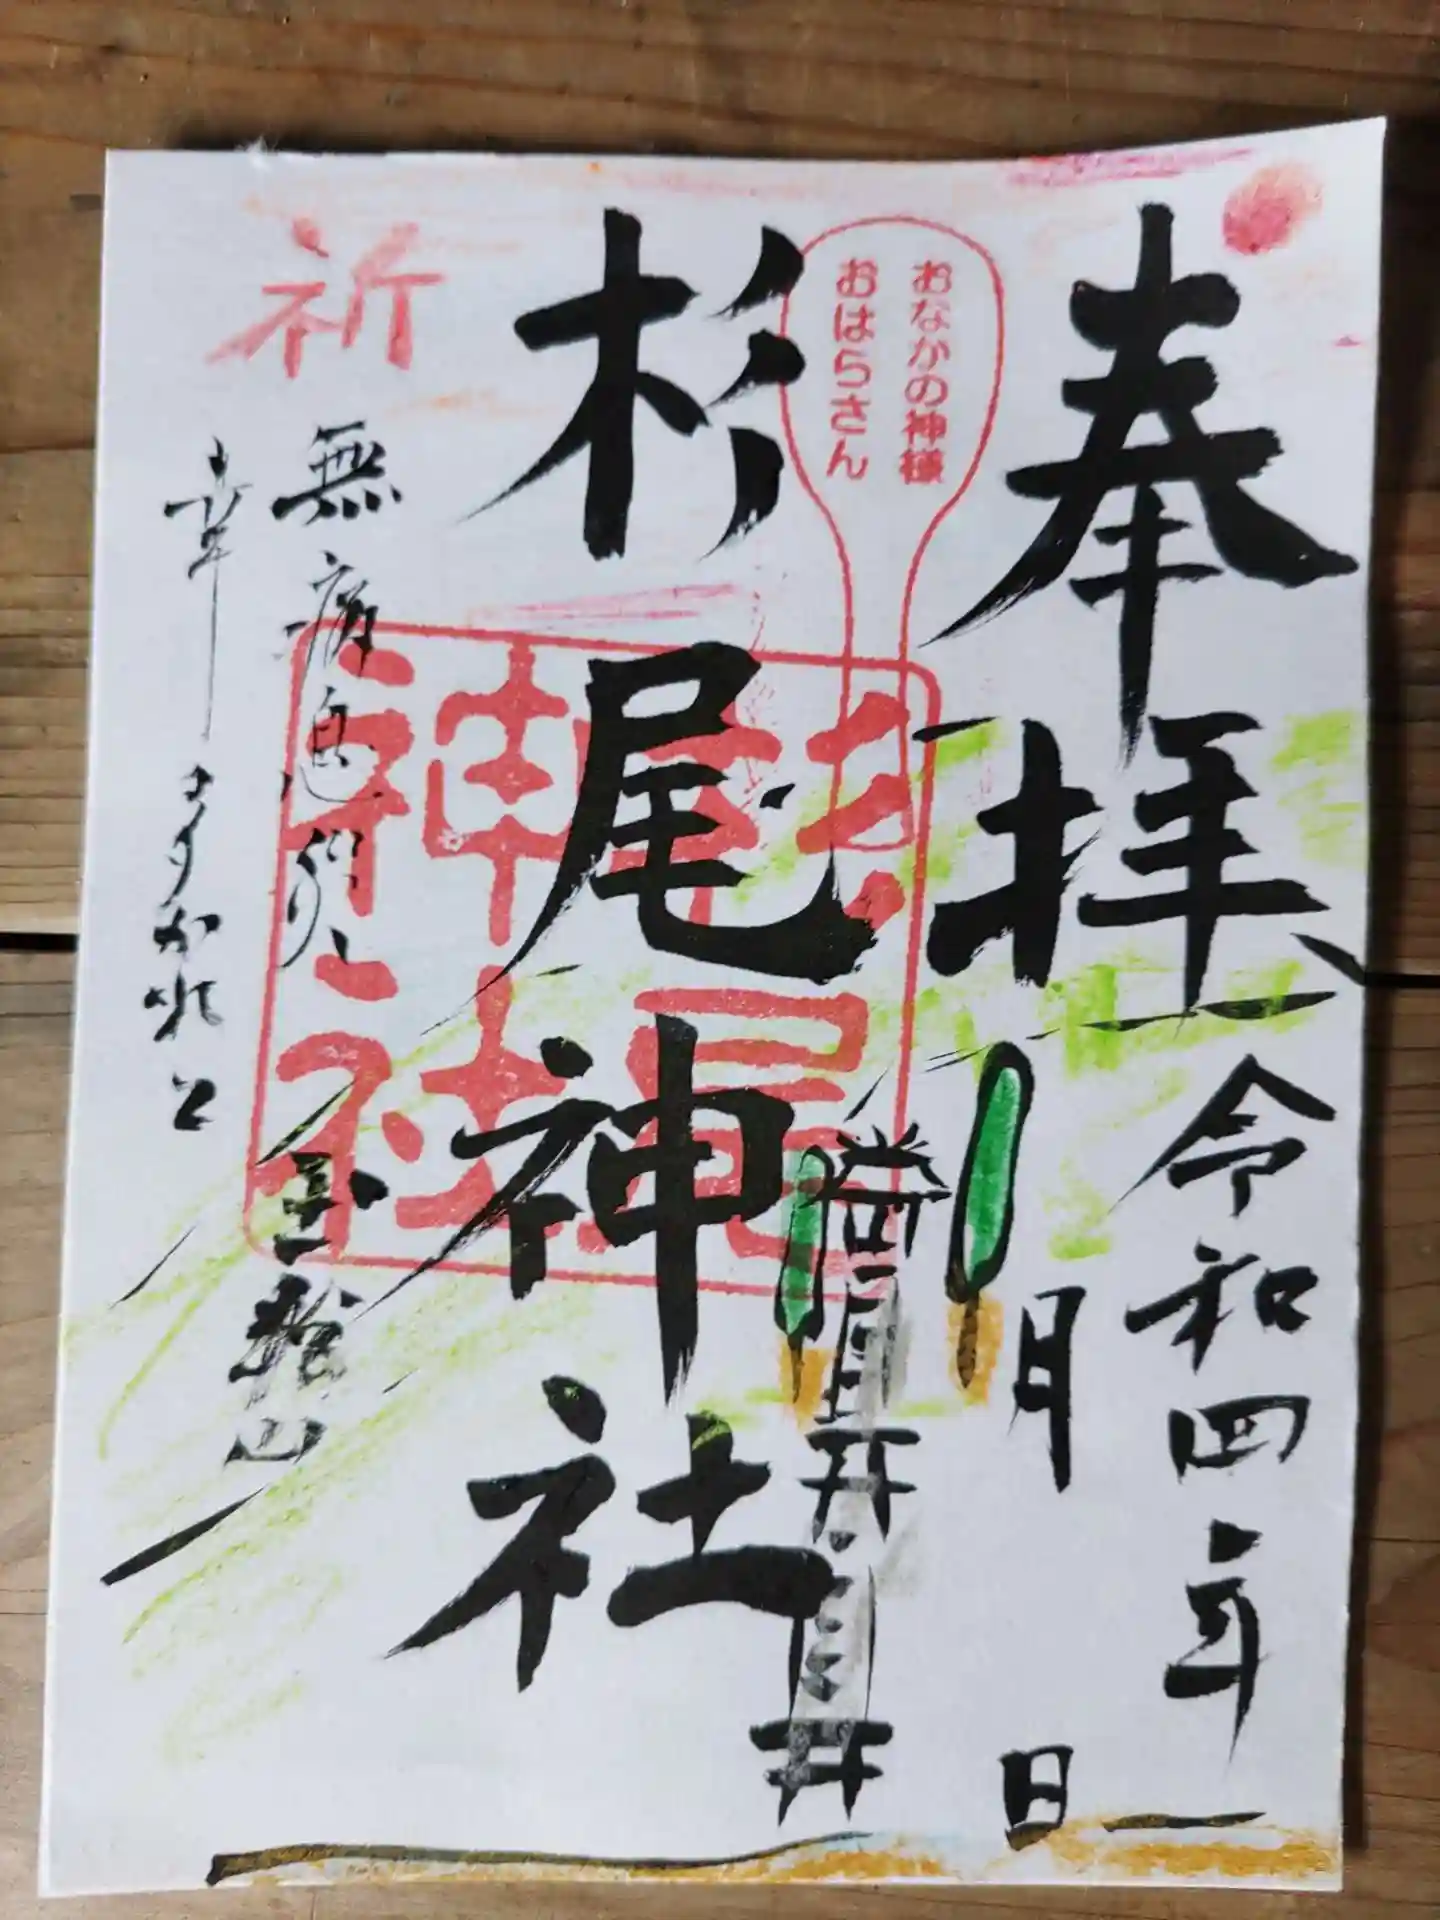 奉拝
令和四年
月
日
おなかの神様
おはらさん
杉尾神社
杉尾神社
祈
無病息災
幸多かれと